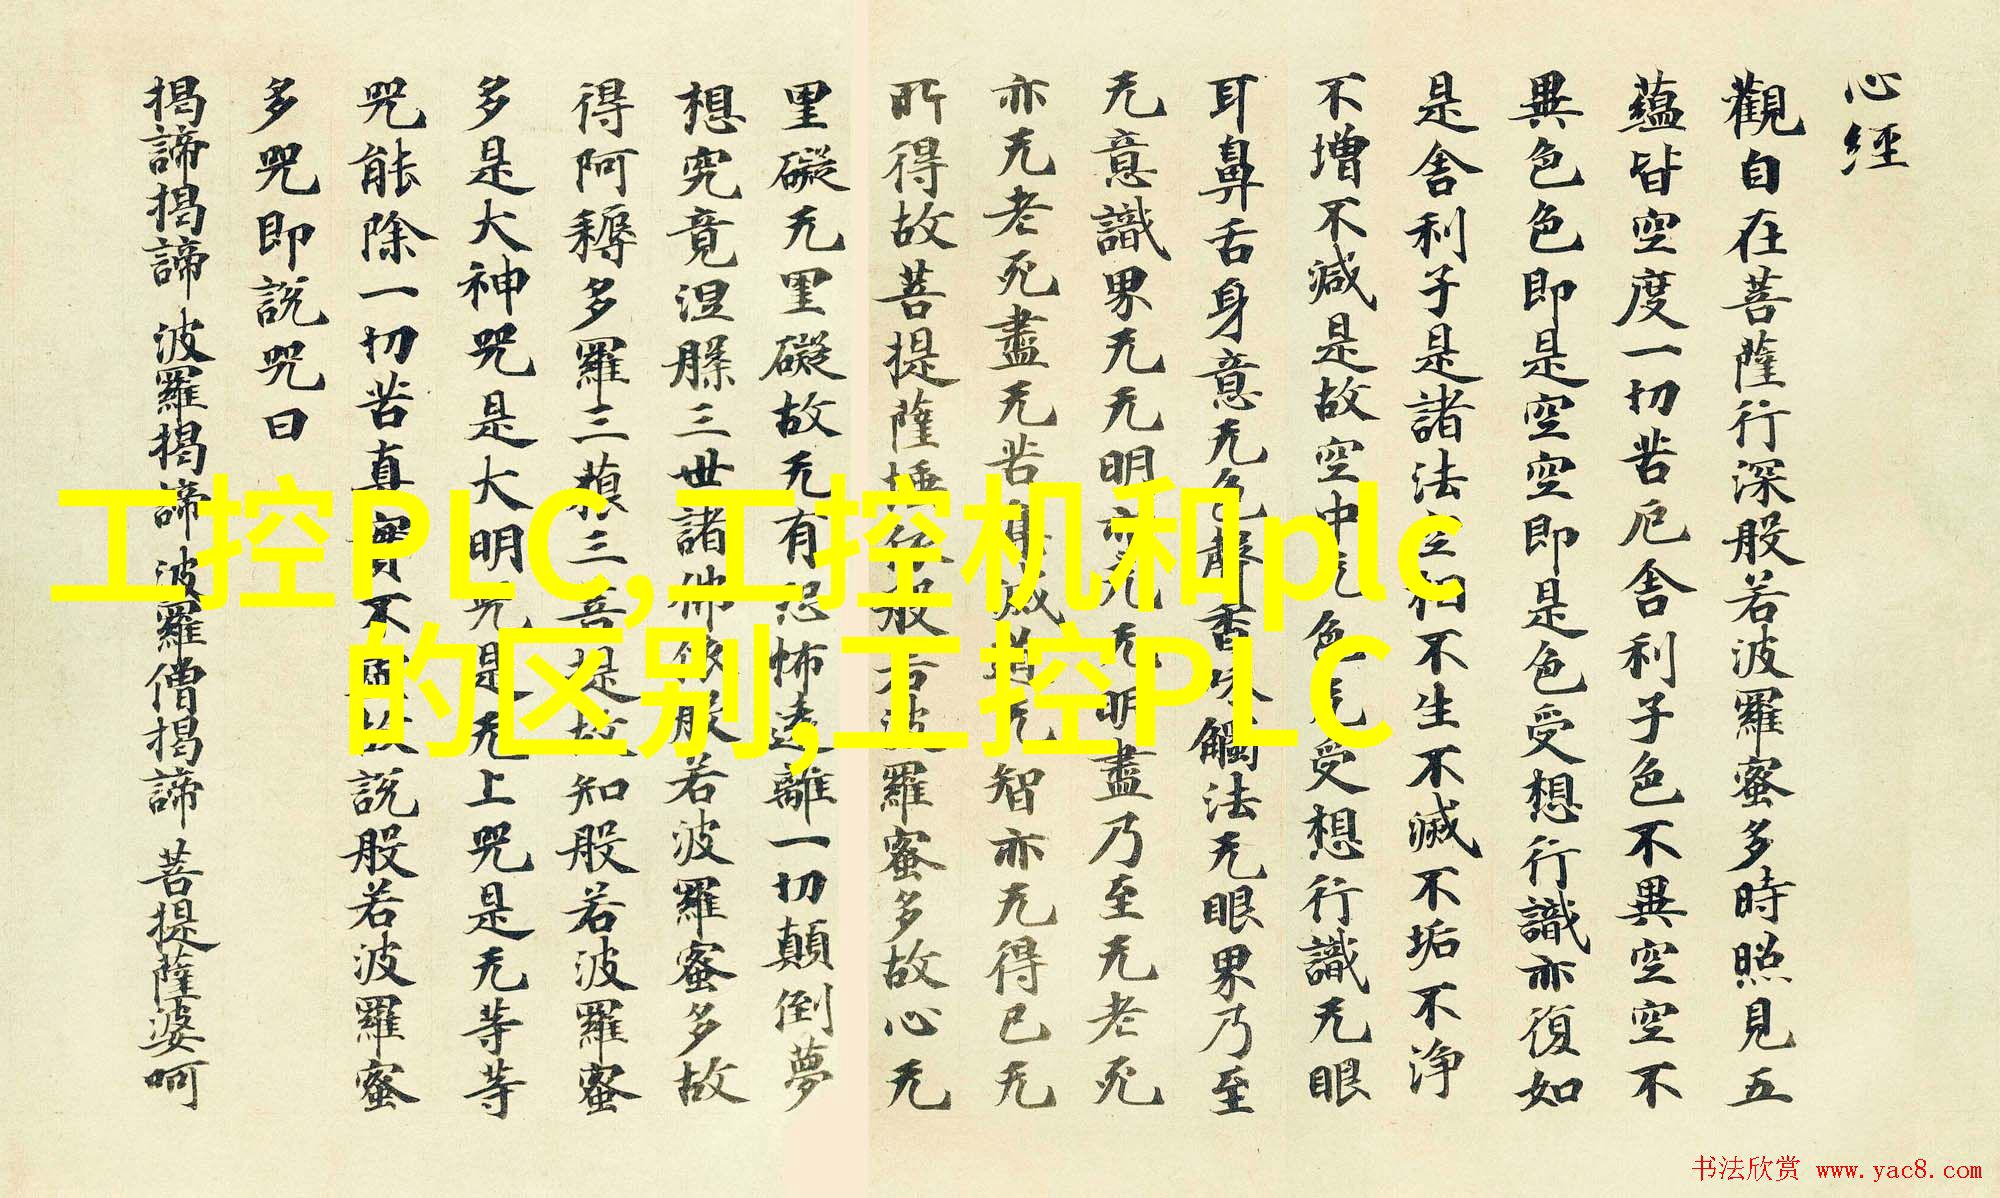 心經
觀自在菩薩行深般若波羅蜜多時照見五
蘊皆空度一切苦厄舍利子色不異空空不
異色色即是空空即是色受想行識亦復如
是舍利子是諸法空相不生不滅不垢不淨
不增不減是故空中无色无受想行識无眼
耳鼻舌身意无色聲香味觸法无眼界乃至
无意識界无无明亦无无明盡乃至无老死
亦无老死盡无苦集滅道无智亦无得已无
所得故菩提薩埵依般若波羅蜜多故心无
罣礙无罣礙故无有恐怖遠離一切顛倒夢
想究竟涅槃三世諸佛依般若波羅蜜多故
得阿耨多羅三藐三菩提故知般若波羅蜜
多是大神咒是大明咒是无上咒是无等等
咒能除一切苦真實不虛故說般若波羅蜜
多咒即說咒曰
揭諦揭諦 波羅揭諦 波羅僧揭諦 菩提薩婆呵
工控PLC,工控机和plc
的区别,工控PLC
书法欣赏 www.yac8.com